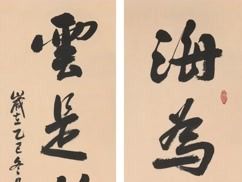 海為
雲是
歲在乙巳冬月